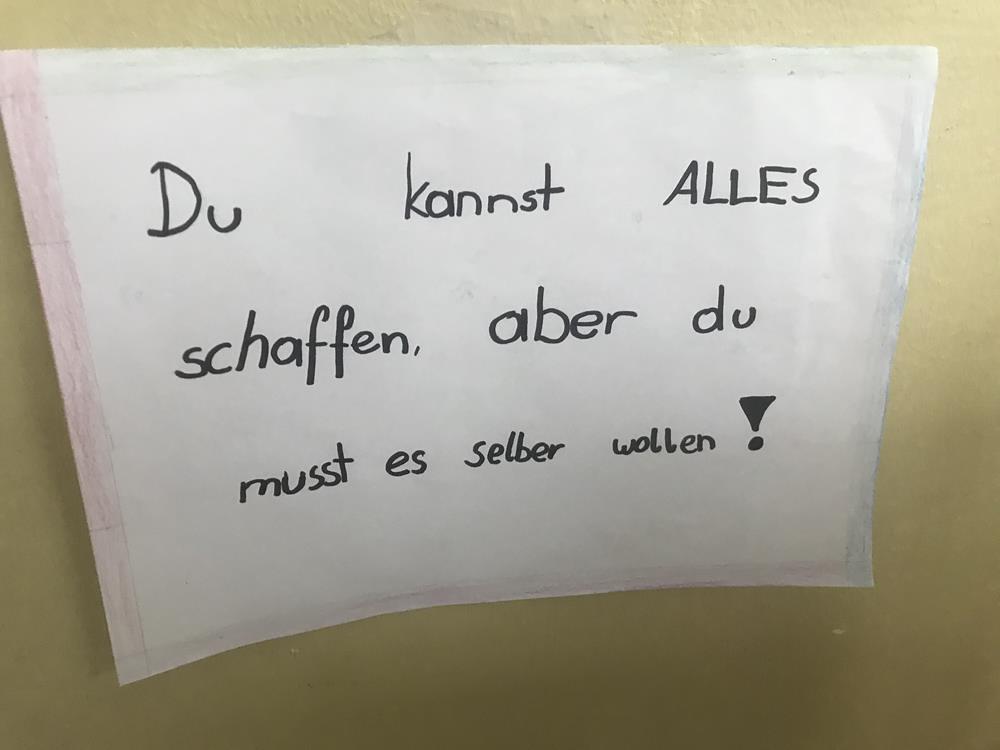 Du kannst ALLES
schaffen, aber du
musst es selber wollen!